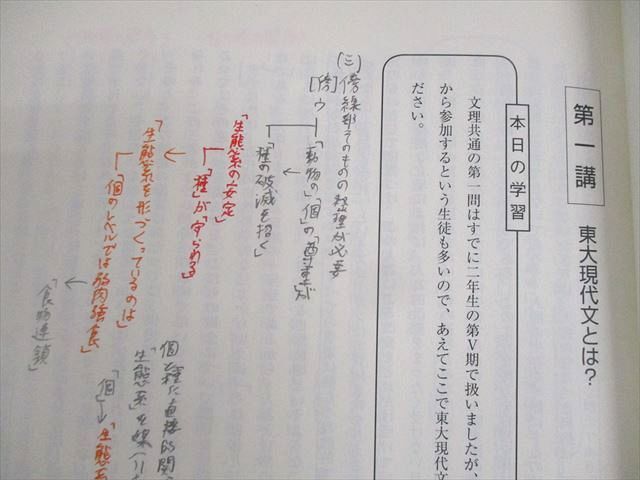 第一講　東大現代文とは？
本日の学習
文理共通の第一問はすでに二年生の第Ⅴ期で扱いましたが、
から参加するという生徒も多いので、あえてここで東大現代文
ださい。
(三) 傍線部そのものの整理が必要
[傍]ウ
「動物の」「個」の「尊重」が
「種の破滅を招く」
「生態系の安定」
「種」が「守られる」
「生態系を形づくっているのは」
「個のレベルでは弱肉強食」
「食物連鎖」
個と種に直接的関
「生態系」を媒
「個」
「生態系